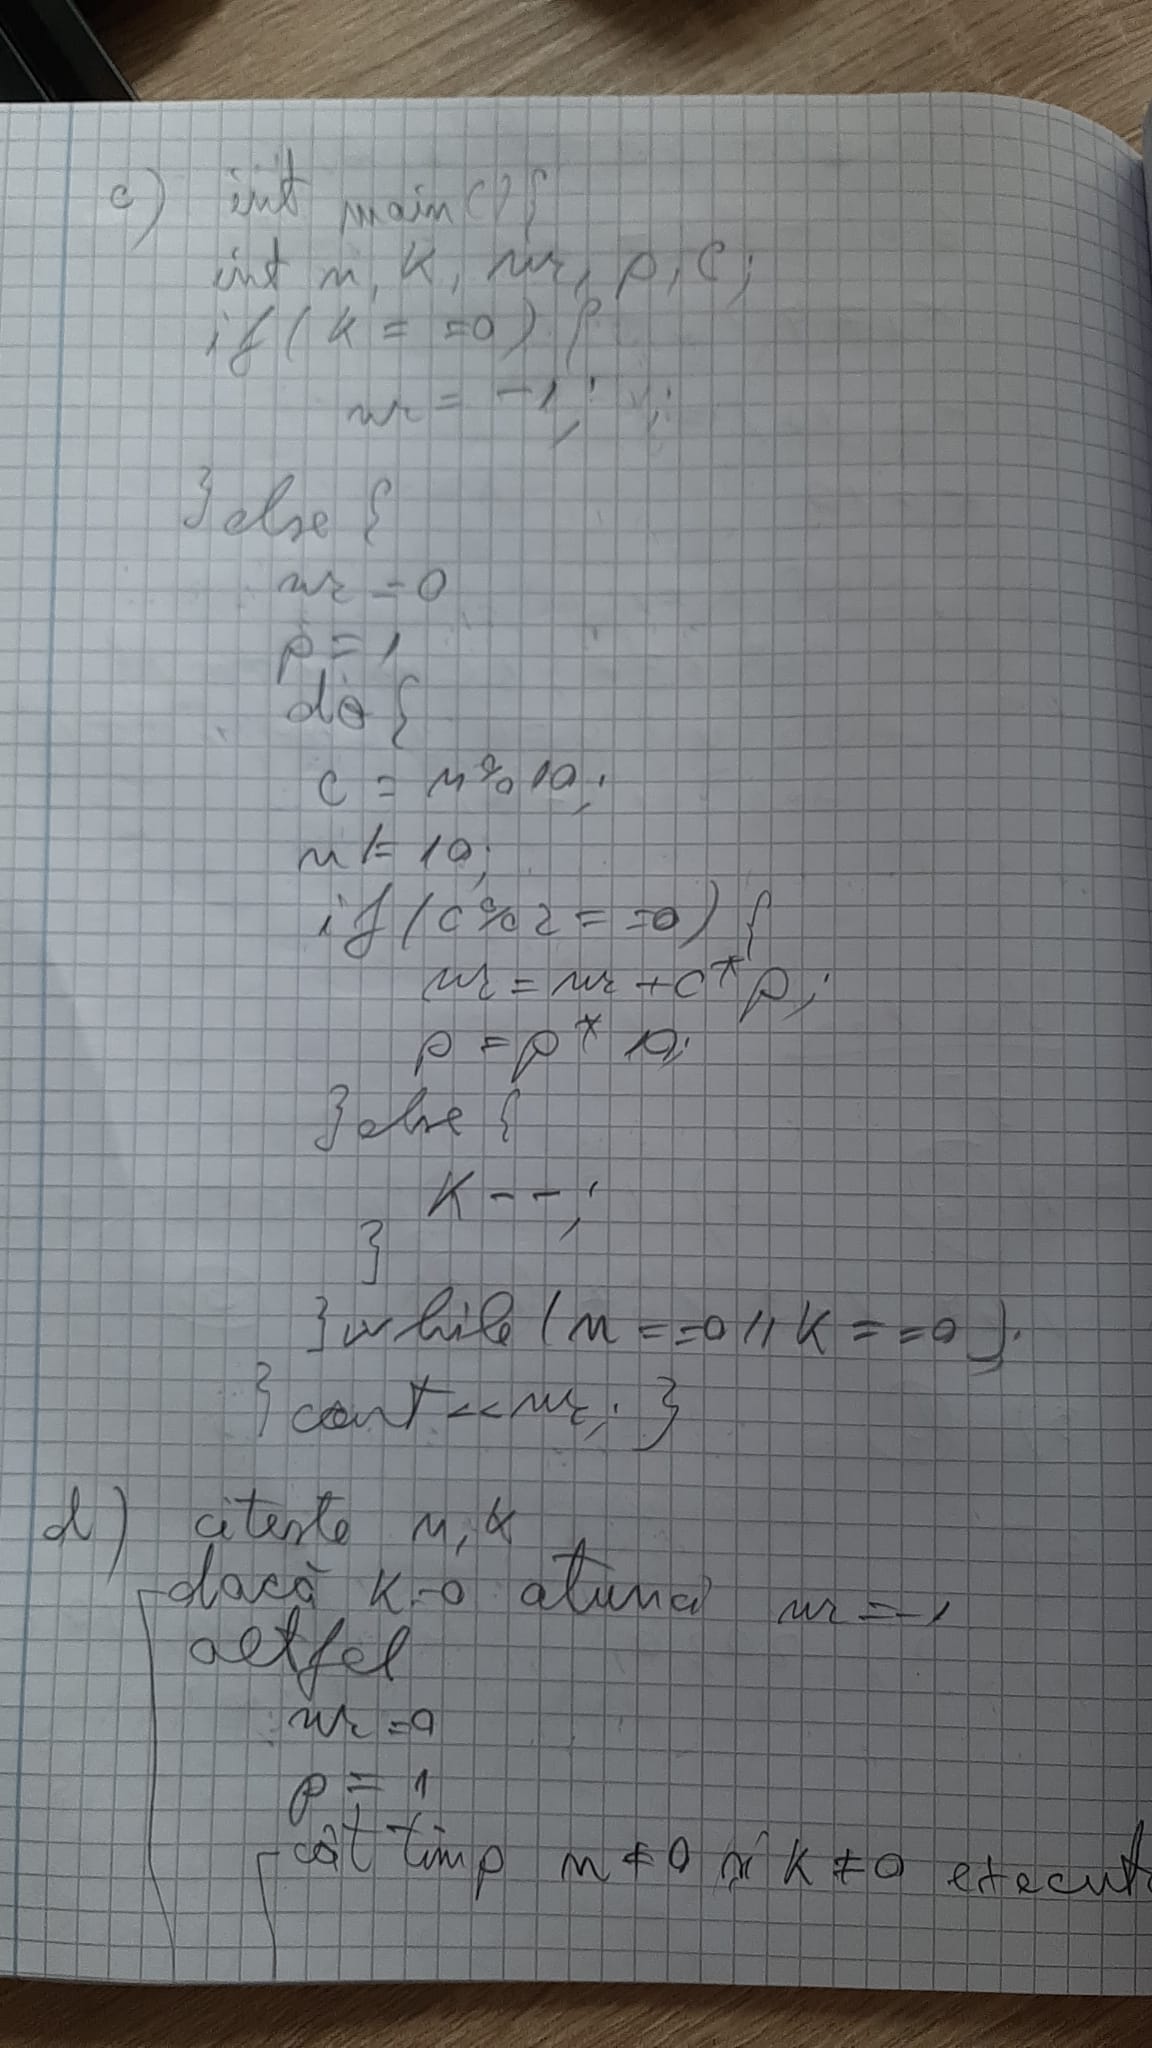 c) int main(){
int n, k, nr, p, c;
if (k = =0) {
nr = -1;
}else {
nr = 0
p = 1
do {
c = n%10;
n /= 10;
if (c%2 = =0) {
nr = nr + c*p;
p = p* 10;
}else {
k--;
}
}while (n ==0 || k ==0 );
} cout << nr; }
d) citeste n, k
dacă k=0 atunci nr = -1
altfel
nr = 0
p = 1
cât timp n ≠ 0 și k ≠ 0 execut